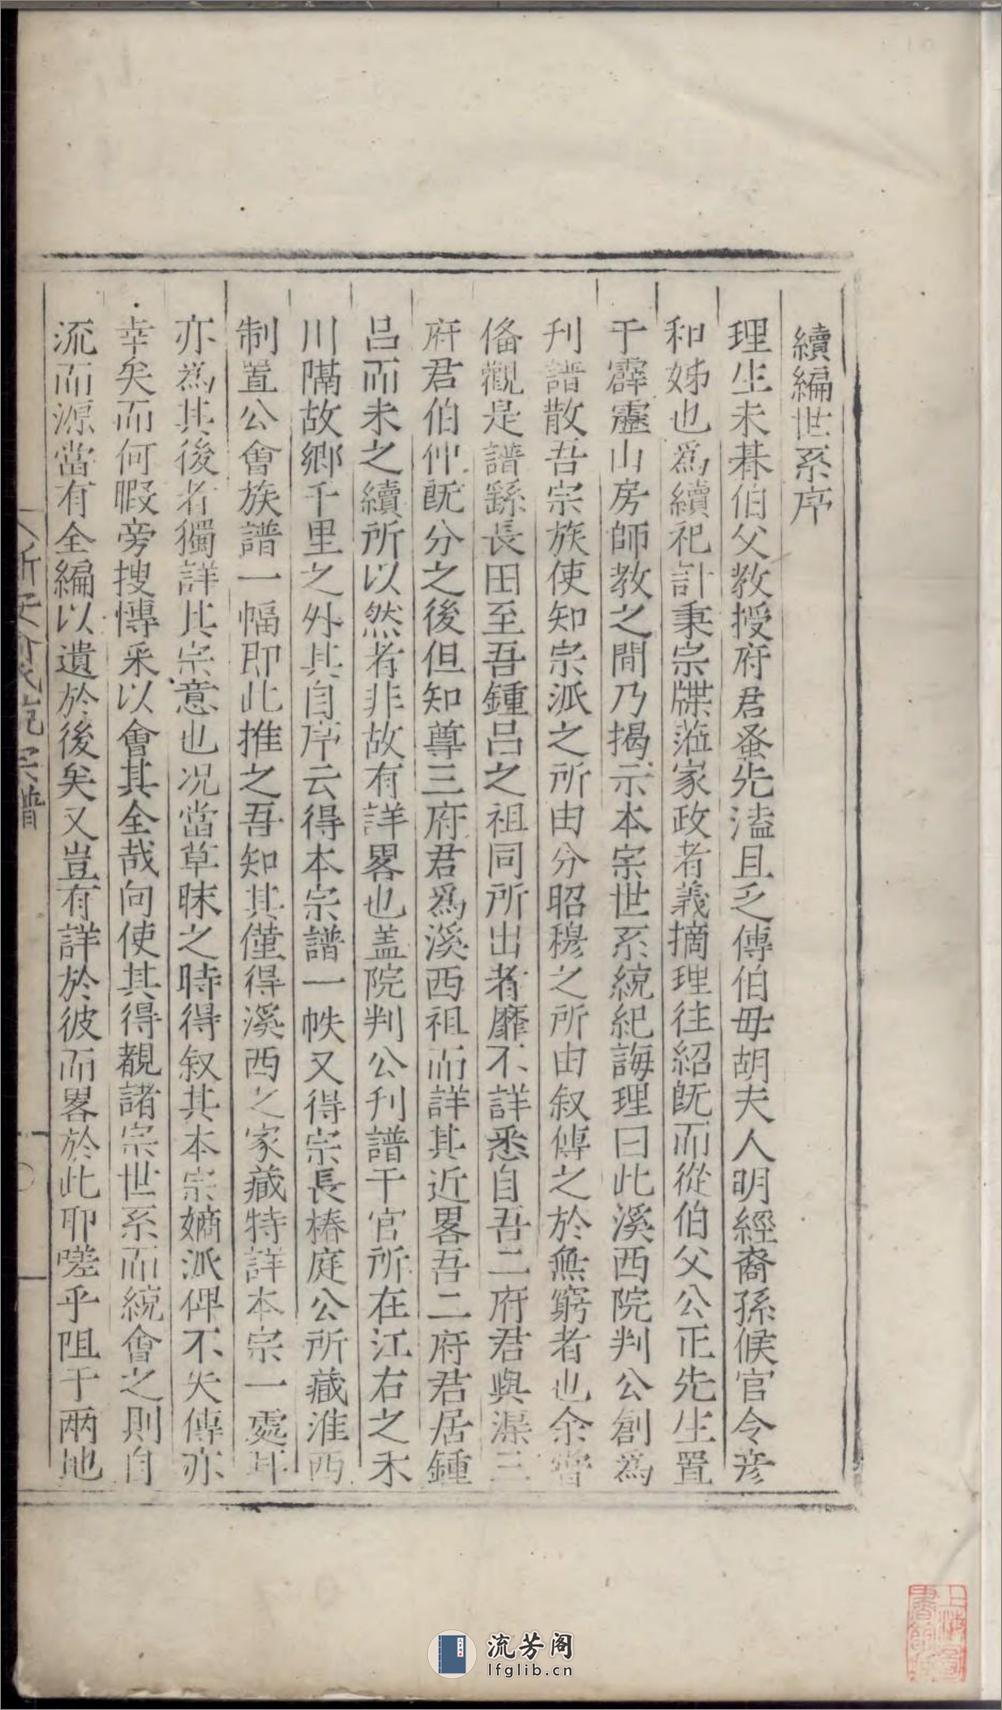 續編世系序
理生未朞伯父教授府君蚤先溘且乏傳伯母胡夫人明經裔孫候官令彦
和姊也爲續祀計秉宗牒蒞家政者義摘理往紹旣而從伯父公正先生置
于霹靂山房師教之間乃揭示本宗世系統紀誨理曰此溪西院判公創爲
刋譜散吾宗族使知宗派之所由分昭穆之所由叙傳之於無窮者也余嘗
俻觀是譜繇長田至吾鍾呂之祖同所出者靡不詳悉自吾二府君與渠三
府君伯仲旣分之後但知尊三府君爲溪西祖而詳其近畧吾二府君居鍾
呂而未之續所以然者非故有詳畧也盖院判公刋譜于官所在江右之禾
川隔故鄉千里之外其自序云得本宗譜一帙又得宗長椿庭公所藏淮西
制置公會族譜一幅即此推之吾知其僅得溪西之家藏特詳本宗一處耳
亦爲其後者獨詳其宗意也况當草昧之時得叙其本宗嫡派俾不失傳亦
幸矣而何暇旁搜慱采以會其全哉向使其得覩諸宗世系而統會之則自
流而源當有全編以遺於後矣又豈有詳於彼而畧於此耶嗟乎阻于兩地
宗譜
流芳阁
lfglib.cn